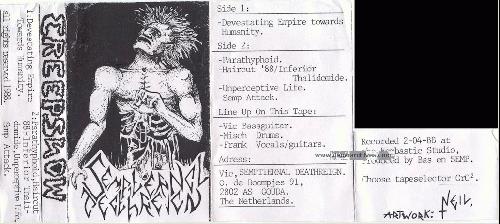 CREEPSHOW
1:Devestating Empire
Towards Humanity.
all rights reserved 1988.
2:Parathyphoid,Haircut
Semp Attack.
SEMPITERNAL
DEATHREIGN
Side 1:
-Devestating Empire towards
Humanity.
Side 2:
-Parathyphoid.
-Haircut '88/Inferior
Thalidomide.
-Unperceptive Live.
Semp Attack.
Line Up On This Tape:
-Vic Bassguiter.
-Misch Drums.
-Frank Vocals/guitars.
Adress:
Vic, SEMPITERNAL DEATHREIGN.
O. de Boompjes 91,
2802 AS GOUDA.
The Netherlands.
Recorded 2-04-88 at
Studio,
by Bas en SEMP.
Choose tapeselector CrO².
ARTWORK: